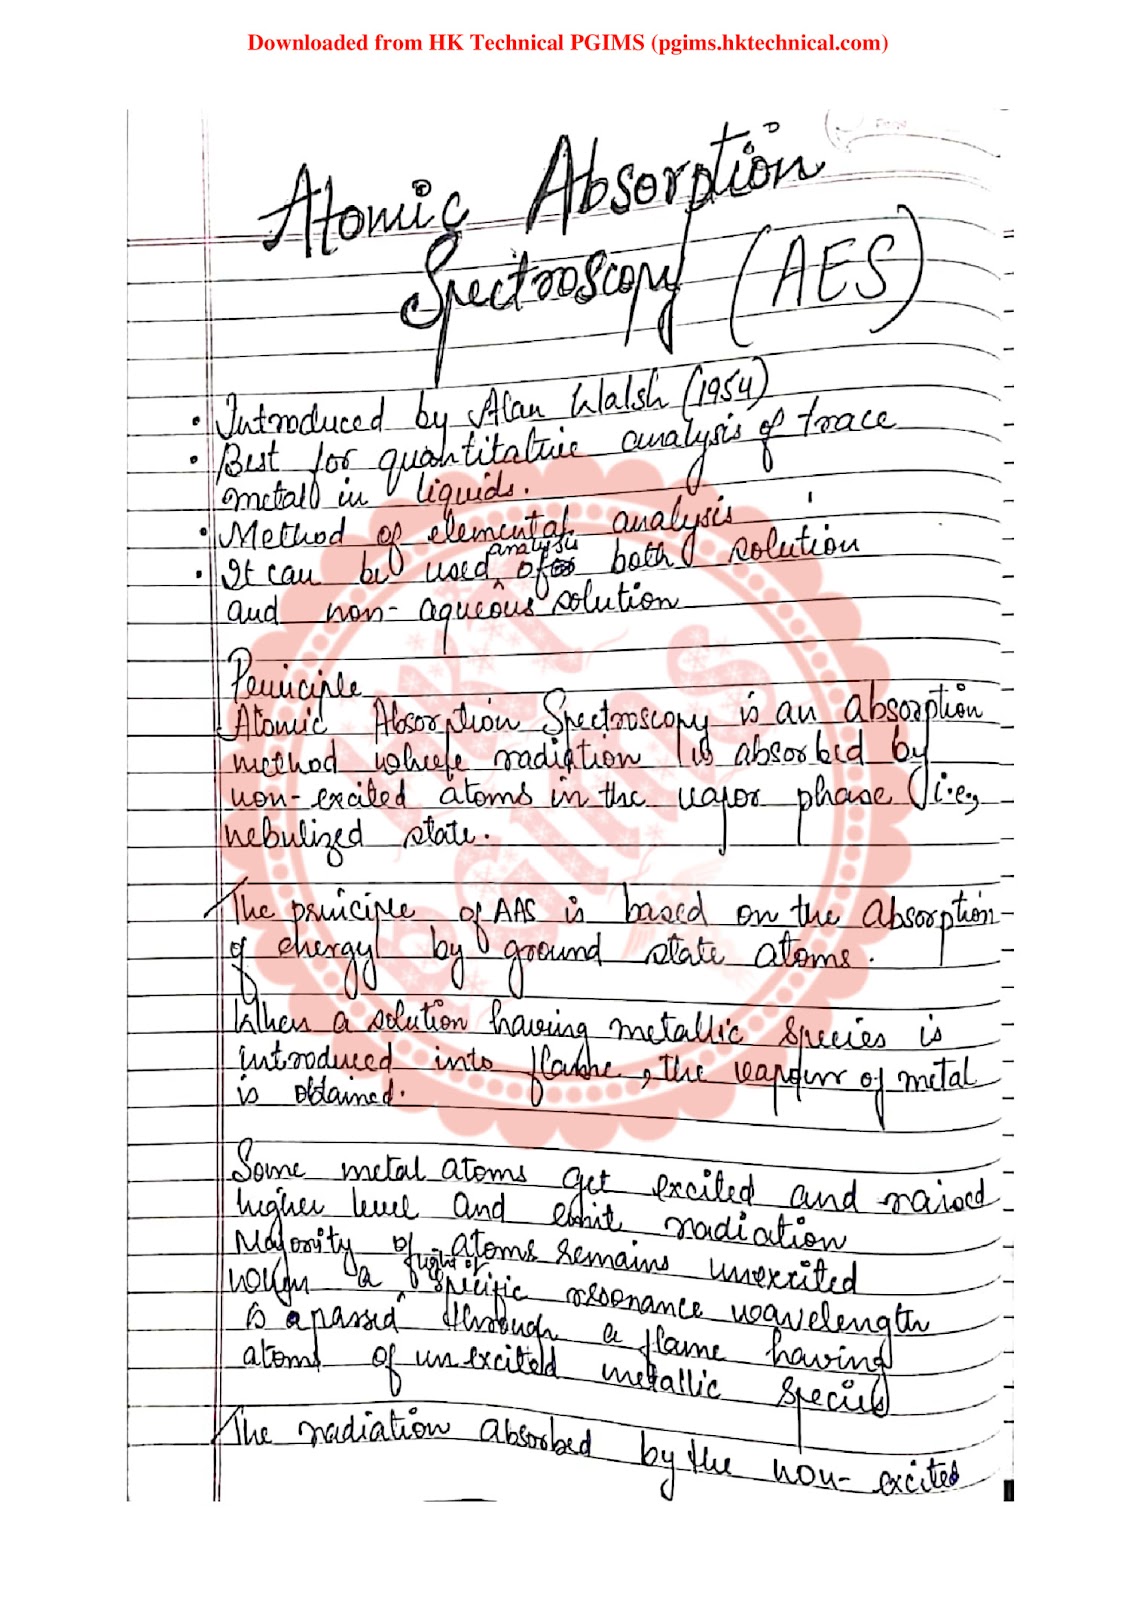 Downloaded from HK Technical PGIMS (pgims.hktechnical.com)
Atomic Absorption
Spectroscopy (AES)
• Introduced by Alan Walsh (1954)
• Best for quantitative analysis of trace
metal in liquids.
• Method of elemental analysis
• It can be used analysis of both solution
and non-aqueous solution
Principle
Atomic Absorption Spectroscopy is an absorption
method where radiation is absorbed by
non-excited atoms in the vapor phase (i.e,
nebulized state.
The principle of AAS is based on the absorption
of energy by ground state atoms.
When a solution having metallic species is
introduced into flame, the vapour of metal
is obtained.
Some metal atoms get excited and raised
higher level and emit radiation
Majority of atoms remains unexcited
when a light of specific resonance wavelength
is passed through a flame having
atoms of unexcited metallic species
The radiation absorbed by the non-excited
HK
PGIMS